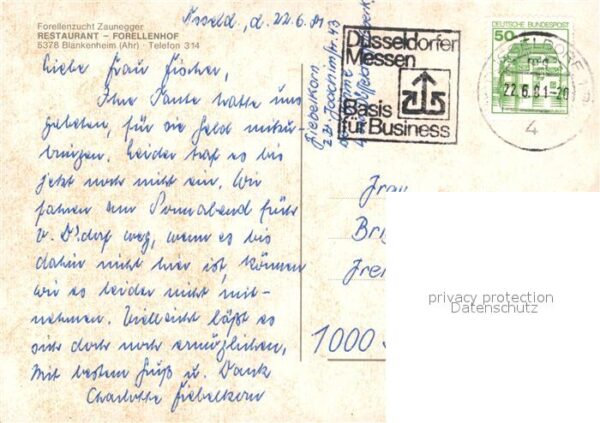 Forellenzucht Zaunegger
RESTAURANT - FORELLENHOF
5378 Blankenheim (Ahr) · Telefon 314
d. 22.6.81
Liebe Frau Fischer,
Ihre Tante hatte uns
gebeten, für sie Geld mitzu-
bringen. Leider traf es bis
jetzt noch nicht ein. Wir
fahren am Sonnabend früh
v. D'dorf weg, wenn es bis
dahin nicht hier ist, können
wir es leider nicht mit-
nehmen. Vielleicht läßt es
sich doch noch ermöglichen.
Mit bestem Gruß u. Dank
Charlotte Fiebelkorn
Fiebelkorn
Joachimstr. 43
Düsseldorfer
Messen
Basis
für Business
DEUTSCHE BUNDESPOST
50
22.6.81-20
4
Frau
Bri
Frei
1000
privacy protection
Datenschutz